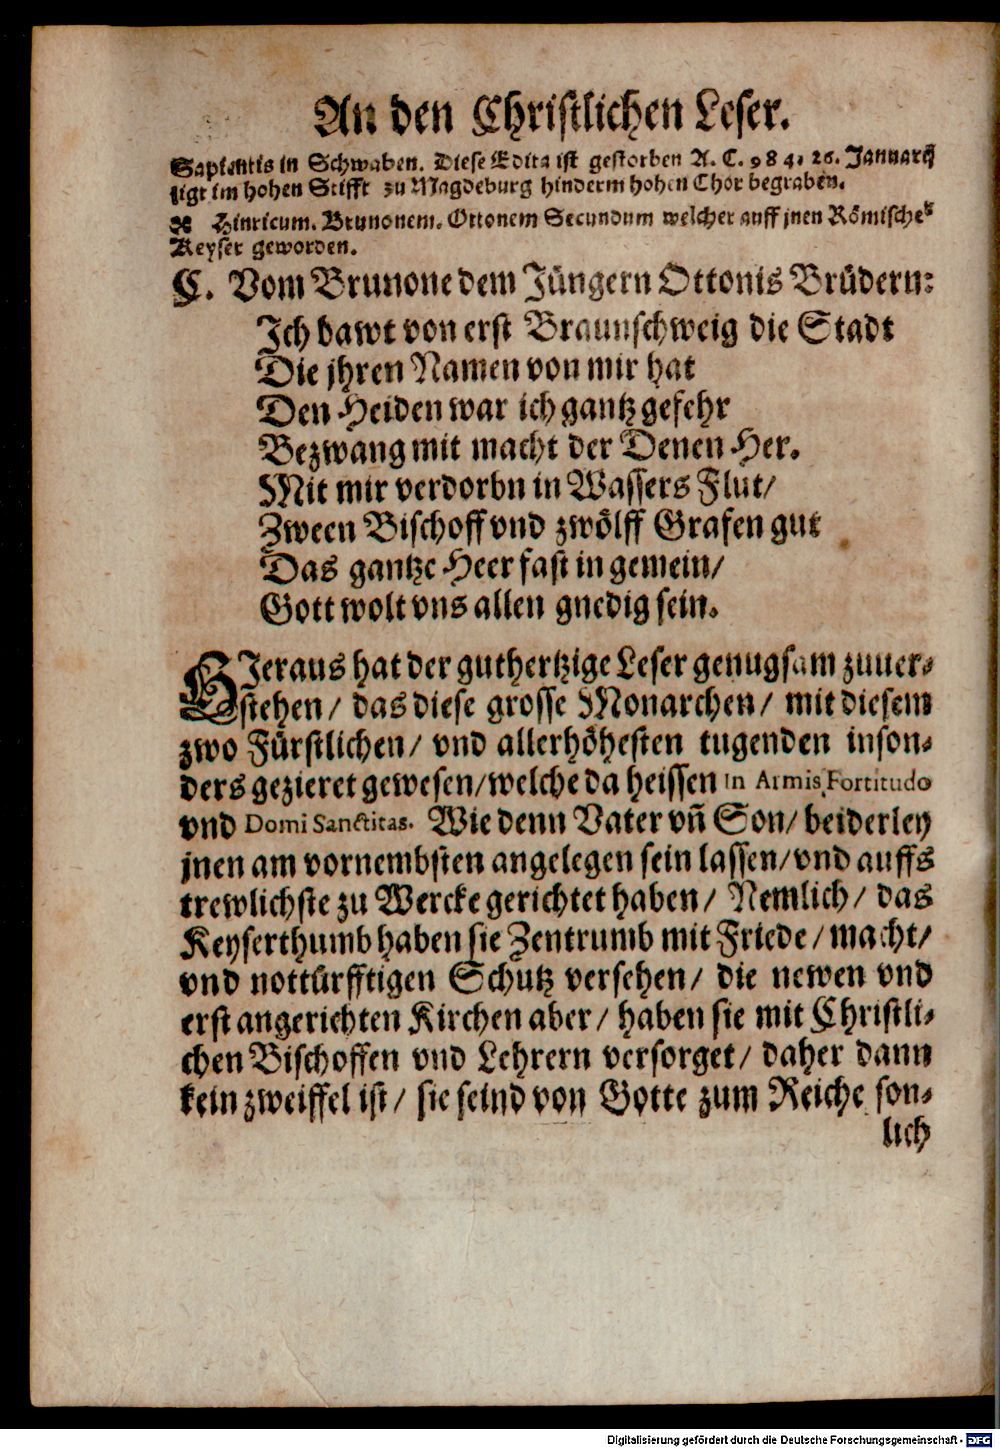 An den Christlichen Leser.
Sapientis in Schwaben. Diese Edita ist gestorben A. C. 984. 26. Januarij
ligt im hohen Stifft zu Magdeburg hinderm hohen Chor begraben.
Hinricum. Brunonem. Ottonem Secundum welcher auff jnen Römischer
Keyser geworden.
C. Vom Brunone dem Jüngern Ottonis Brüdern:
Ich bawt von erst Braunschweig die Stadt
Die jhren Namen von mir hat
Den Heiden war ich gantz gefehr
Bezwang mit macht der Denen Her.
Mit mir verdorbn in Wassers Flut/
Zween Bischoff vnd zwölff Grafen gut
Das gantze Heer fast in gemein/
Gott wolt vns allen gnedig sein.
HIeraus hat der guthertzige Leser genugsam zuuer-
stehen/ das diese grosse Monarchen/ mit diesem
zwo Fürstlichen/ vnd allerhöhesten tugenden inson-
ders gezieret gewesen/welche da heissen in Armis Fortitudo
vnd Domi Sanctitas. Wie denn Vater vñ Son/ beiderley
jnen am vornembsten angelegen sein lassen/vnd auffs
trewlichste zu Wercke gerichtet haben/ Nemlich/ das
Keyserthumb haben sie Zentrumb mit Friede/macht/
vnd nottürfftigen Schutz versehen/ die newen vnd
erst angerichten Kirchen aber/ haben sie mit Christli-
chen Bischoffen vnd Lehrern versorget/ daher dann
kein zweiffel ist/ sie seind von Gotte zum Reiche son-
lich
Digitalisierung gefördert durch die Deutsche Forschungsgemeinschaft - DFG